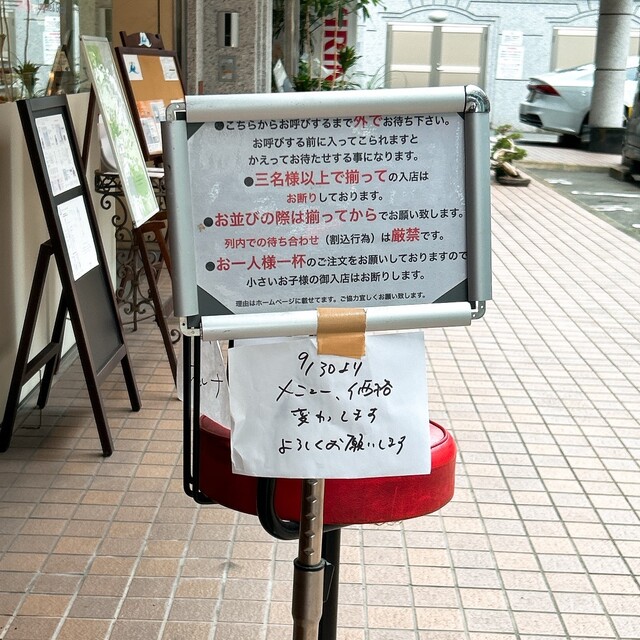 ●こちらからお呼びするまで外でお待ち下さい。
お呼びする前に入ってこられますと
かえってお待たせする事になります。
●三名様以上で揃っての入店は
お断りしております。
●お並びの際は揃ってからでお願い致します。
列内での待ち合わせ（割込行為）は厳禁です。
●お一人様一杯のご注文をお願いしておりますので
小さいお子様の御入店はお断りします。
理由はホームページに載せてます。ご協力宜しくお願い致します。
9/30より
メニュー、価格
変わります
よろしくお願いします